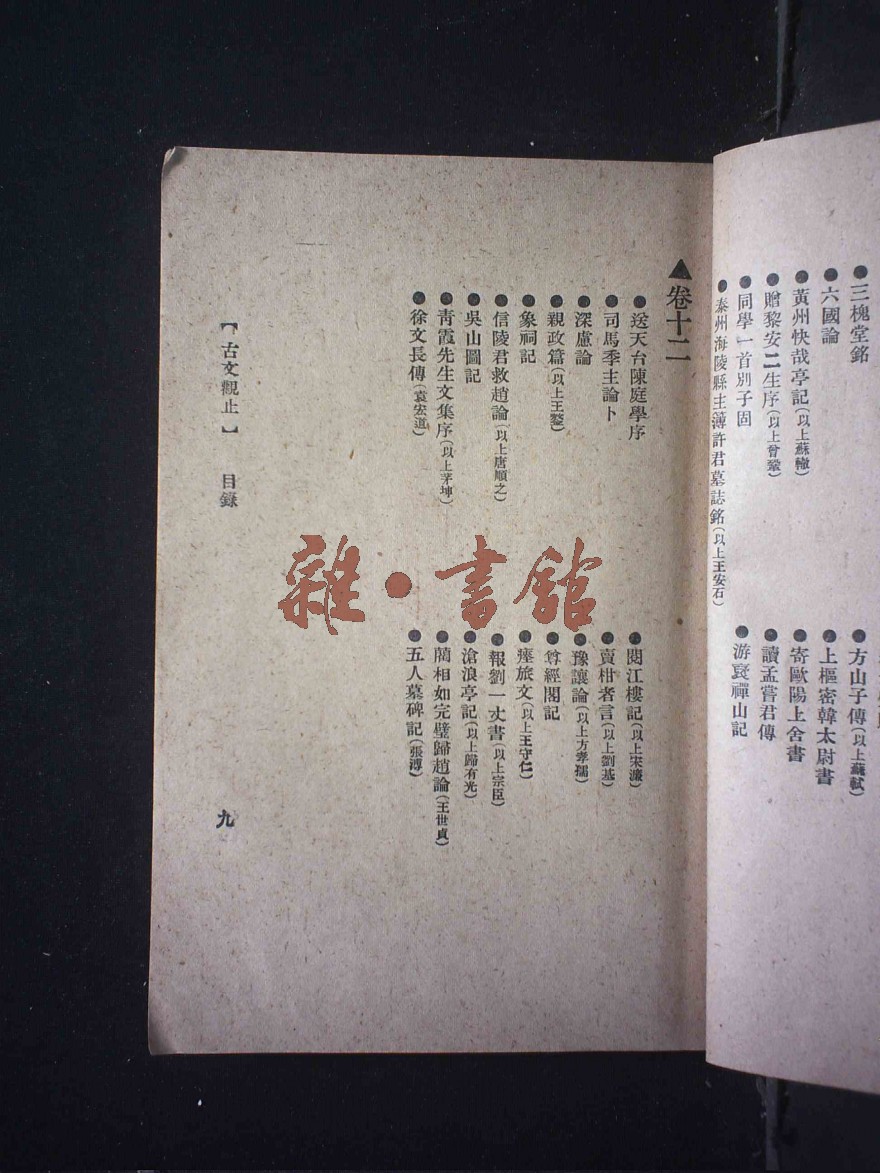 ●三槐堂銘
●方山子傳(以上蘇軾)
●六國論
●上樞密韓太尉書
●黃州快哉亭記(以上蘇轍)
●寄歐陽上舍書
●贈黎安二生序(以上曾鞏)
●讀孟嘗君傳
●同學一首別子固
●游襃禪山記
●泰州海陵縣主簿許君墓誌銘(以上王安石)
▲卷十二
●送天台陳庭學序
●閱江樓記(以上宋濂)
●司馬季主論卜
●賣柑者言(以上劉基)
●深慮論
●豫讓論(以上方孝孺)
●親政篇(以上王鏊)
●尊經閣記
●象祠記
●瘞旅文(以上王守仁)
●信陵君救趙論(以上唐順之)
●報劉一丈書(以上宗臣)
●吳山圖記
●滄浪亭記(以上歸有光)
●靑霞先生文集序(以上茅坤)
●藺相如完璧歸趙論(王世貞)
●徐文長傳(袁宏道)
●五人墓碑記(張溥)
【古文觀止】 目錄
九
雜·書館